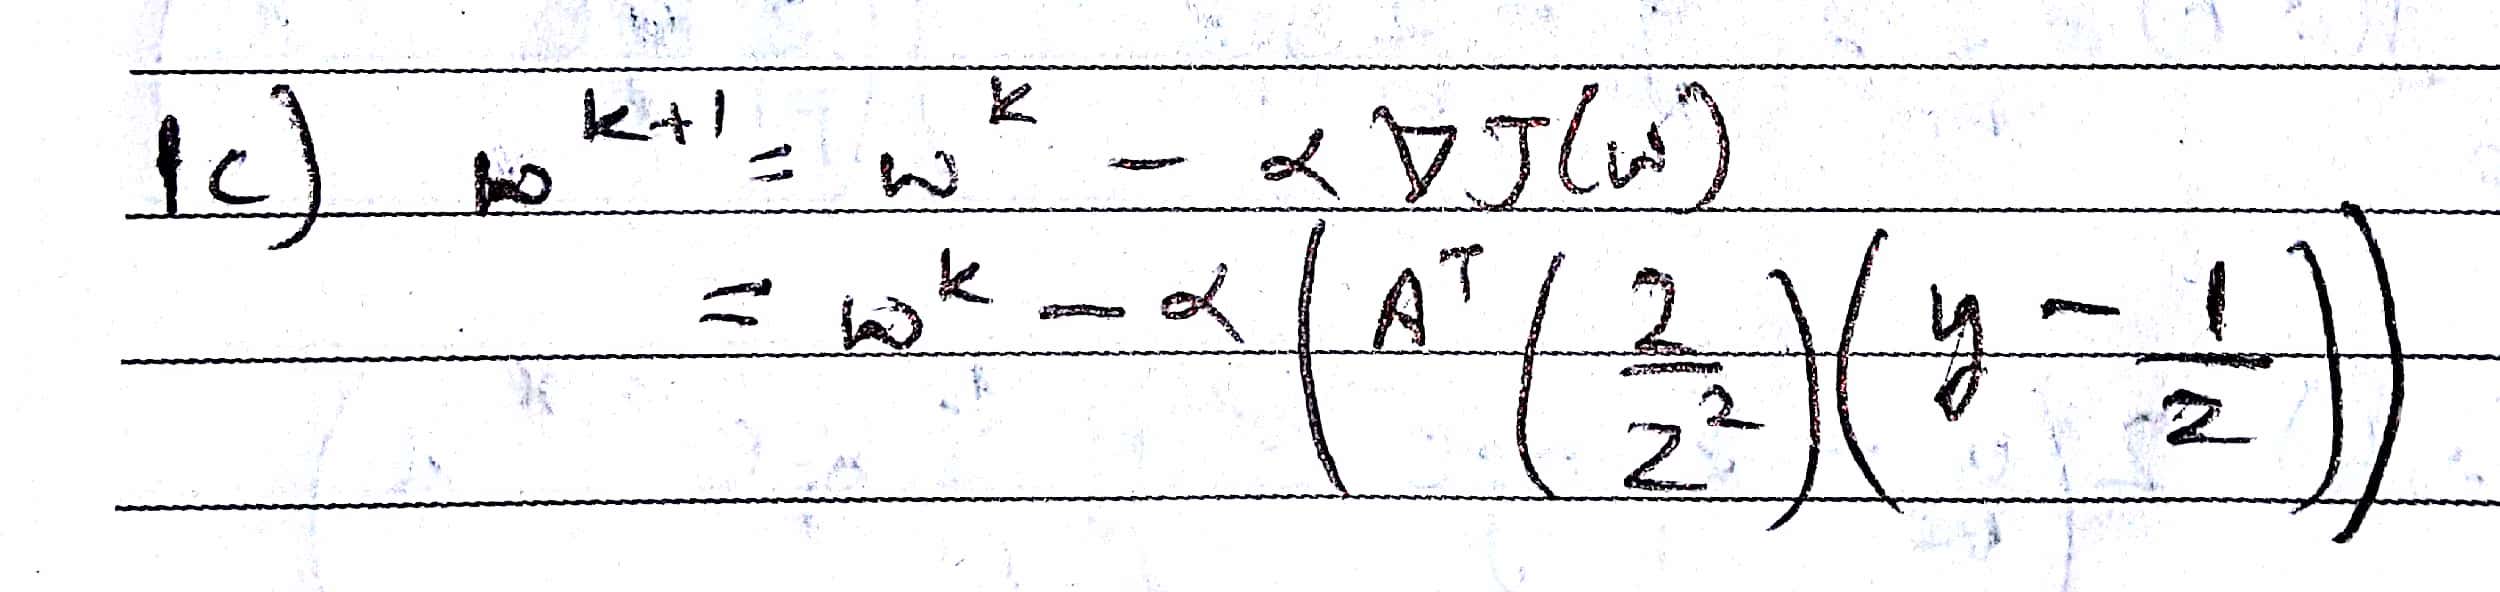 1c) w^{k+1} = w^k - α ∇J(w)
= w^k - α (A^T (2/z^2)(y - 1/z))